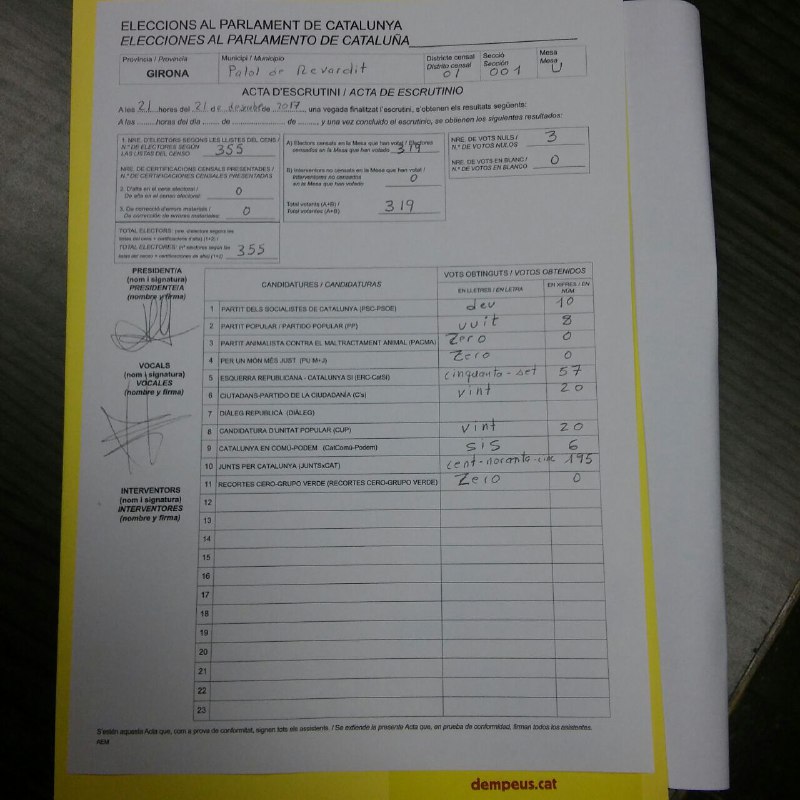 ELECCIONS AL PARLAMENT DE CATALUNYA
ELECCIONES AL PARLAMENTO DE CATALUÑA
Província / Provincia
GIRONA
Municipi / Municipio
Palol de Revardit
Districte censal
Distrito censal
01
Secció
Sección
001
Mesa
Mesa
U
ACTA D'ESCRUTINI / ACTA DE ESCRUTINIO
A les 21 hores del 21 de desembre de 2017 una vegada finalitzat l'escrutini, s'obtenen els resultats següents:
A las ...... horas del día ...... de ...... de ...... y una vez concluido el escrutinio, se obtienen los siguientes resultados:
1. NRE. D'ELECTORS SEGONS LES LLISTES DEL CENS /
N.º DE ELECTORES SEGÚN
LAS LISTAS DEL CENSO
355
NRE. DE CERTIFICACIONS CENSALS PRESENTADES /
N.º DE CERTIFICACIONES CENSALES PRESENTADAS
2. D'alta en el cens electoral /
De alta en el censo electoral:
0
3. De correcció d'errors materials /
De corrección de errores materiales:
0
TOTAL ELECTORS: (nre. d'electors segons les
llistes del cens + certificacions d'alta) (1+2) /
TOTAL ELECTORES: (nº electores según las
listas del censo + certificaciones de alta) (1+2)
355
A) Electors censats en la Mesa que han votat / Electores
censados en la Mesa que han votado
319
B) Interventors no censats en la Mesa que han votat /
Interventores no censados
en la Mesa que han votado
0
Total votants (A+B) /
Total votantes (A+B)
319
NRE. DE VOTS NULS /
N.º DE VOTOS NULOS
3
NRE. DE VOTS EN BLANC /
N.º DE VOTOS EN BLANCO
0
PRESIDENT/A
(nom i signatura)
PRESIDENTE/A
(nombre y firma)
VOCALS
(nom i signatura)
VOCALES
(nombre y firma)
INTERVENTORS
(nom i signatura)
INTERVENTORES
(nombre y firma)
CANDIDATURES / CANDIDATURAS
VOTS OBTINGUTS / VOTOS OBTENIDOS
EN LLETRES / EN LETRA
EN XIFRES / EN NÚM
1 PARTIT DELS SOCIALISTES DE CATALUNYA (PSC-PSOE) deu 10
2 PARTIT POPULAR / PARTIDO POPULAR (PP) vuit 8
3 PARTIT ANIMALISTA CONTRA EL MALTRACTAMENT ANIMAL (PACMA) Zero 0
4 PER UN MÓN MÉS JUST (PUM+J) Zero 0
5 ESQUERRA REPUBLICANA - CATALUNYA SÍ (ERC-CatSí) cinquanta-set 57
6 CIUTADANS-PARTIDO DE LA CIUDADANÍA (C's) vint 20
7 DIÀLEG REPUBLICÀ (DIÀLEG)
8 CANDIDATURA D'UNITAT POPULAR (CUP) vint 20
9 CATALUNYA EN COMÚ-PODEM (CatComú-Podem) sis 6
10 JUNTS PER CATALUNYA (JUNTSxCAT) cent-noranta-cinc 195
11 RECORTES CERO-GRUPO VERDE (RECORTES CERO-GRUPO VERDE) Zero 0
12
13
14
15
16
17
18
19
20
21
22
23
S'estén aquesta Acta que, com a prova de conformitat, signen tots els assistents. / Se extiende la presente Acta que, en prueba de conformidad, firman todos los asistentes.
AEM
dempeus.cat